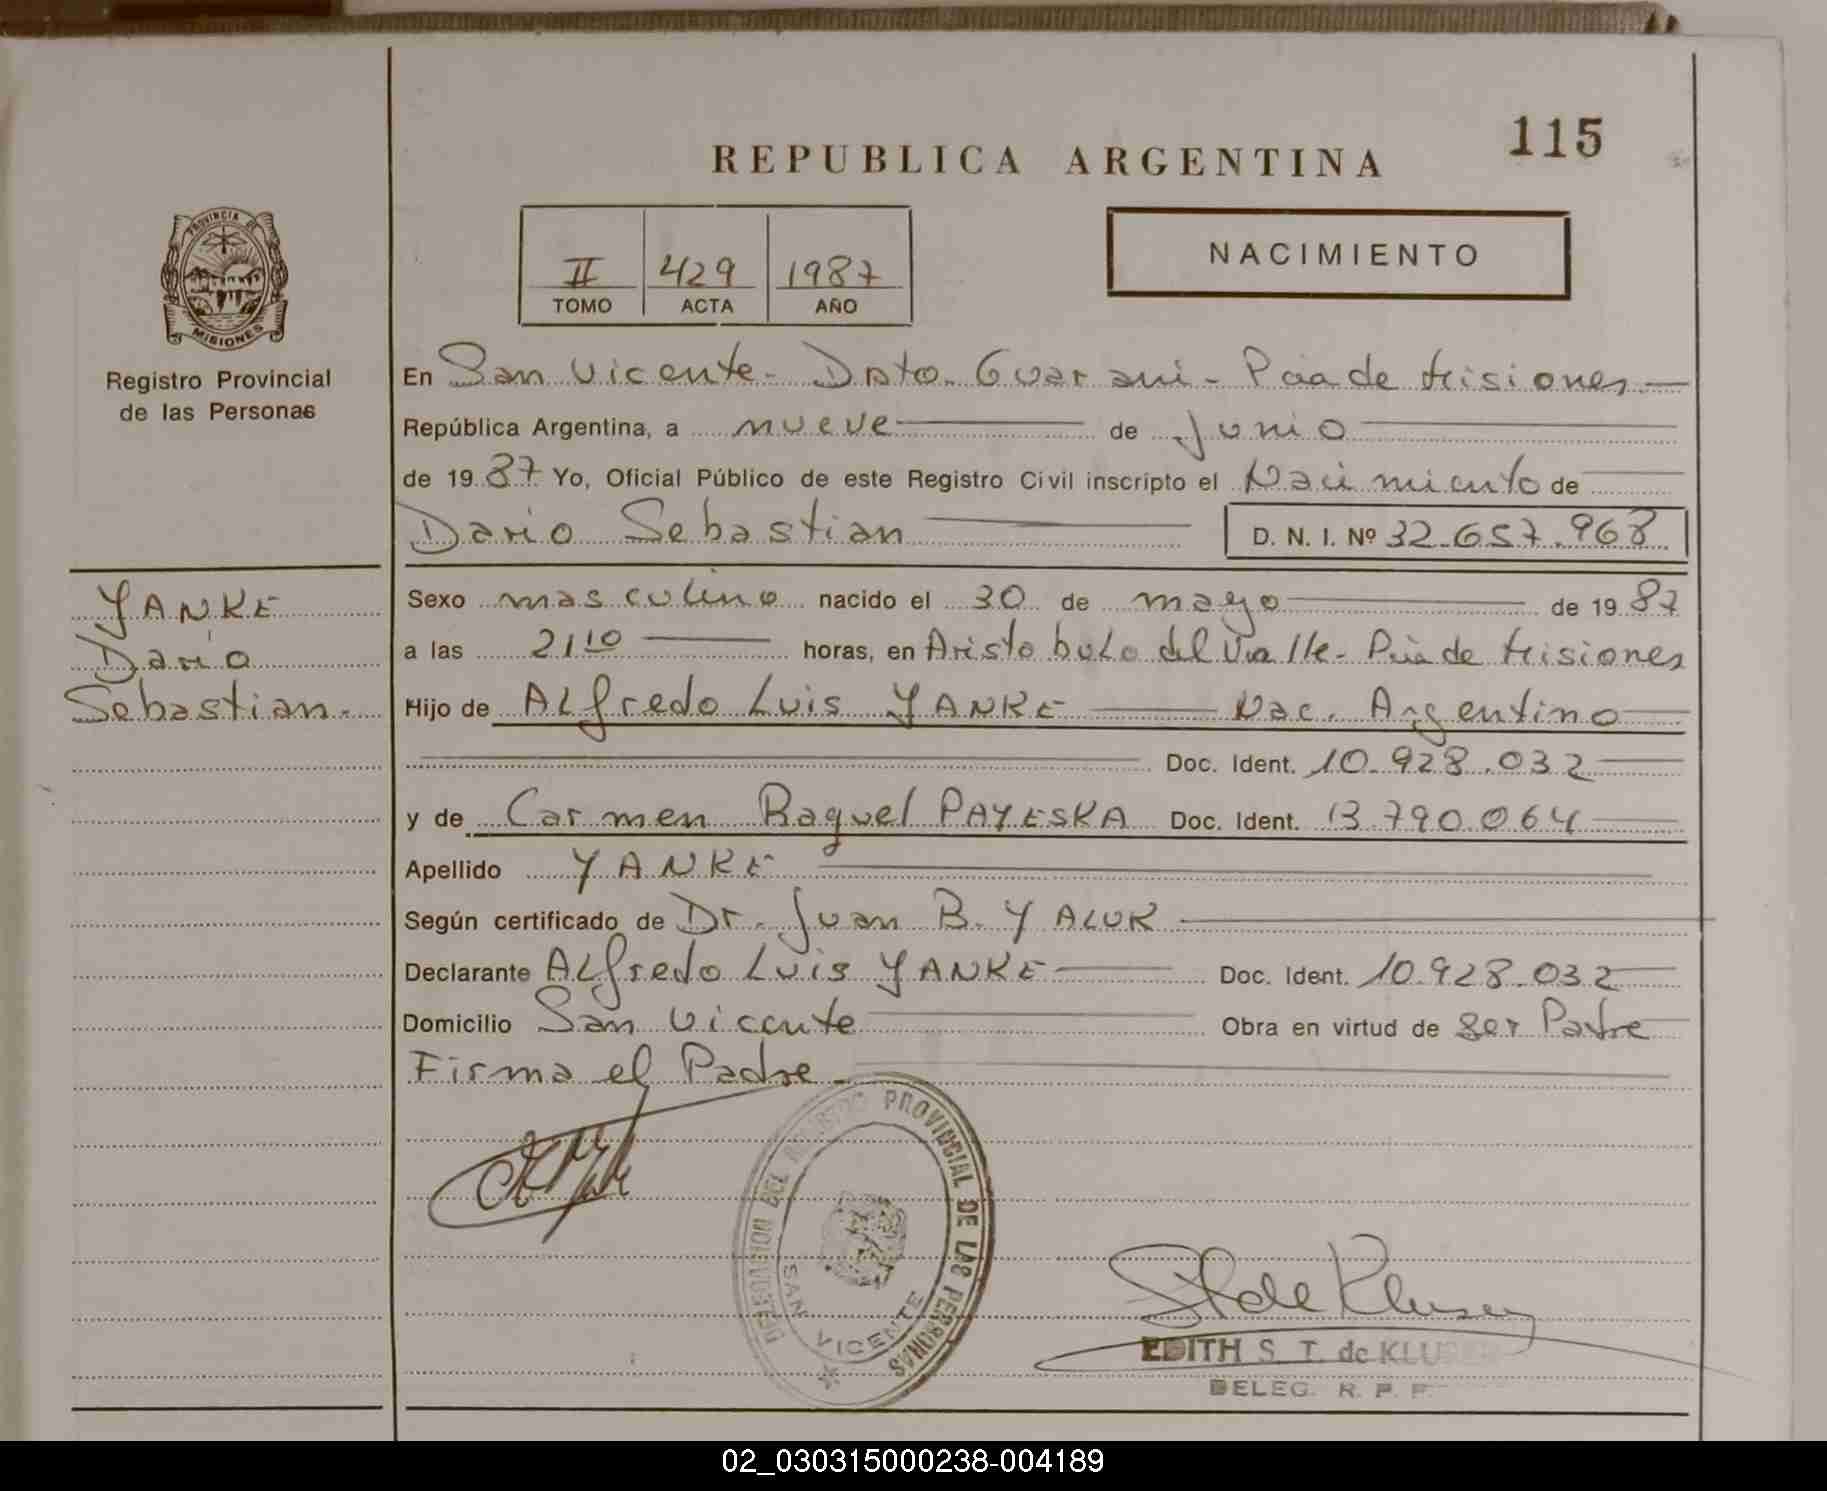 115
REPUBLICA ARGENTINA
PROVINCIA DE
MISIONES
Registro Provincial
de las Personas
II 429 1987
TOMO ACTA AÑO
NACIMIENTO
En San Vicente - Dpto. Guarani - Pcia de Misiones
República Argentina, a nueve de Junio
de 1987 Yo, Oficial Público de este Registro Civil inscripto el Nacimiento de
Dario Sebastian D. N. I. Nº 32.657.968
YANKE
Dario
Sebastian.-
Sexo masculino nacido el 30 de mayo de 1987
a las 21 10 horas, en Aristobulo del Valle - Pcia de Misiones
Hijo de Alfredo Luis YANKE Nac. Argentino
Doc. Ident. 10.928.032
y de Carmen Raquel PAYESKA Doc. Ident. 13.790.064
Apellido YANKE
Según certificado de Dr. Juan B. YALUK
Declarante Alfredo Luis YANKE Doc. Ident. 10.928.032
Domicilio San Vicente Obra en virtud de ser Padre
Firma el Padre.-
DELEGACION DEL REGISTRO PROVINCIAL DE LAS PERSONAS
SAN VICENTE
EDITH S. T. de
DELEG. R. P. P.
02_030315000238-004189